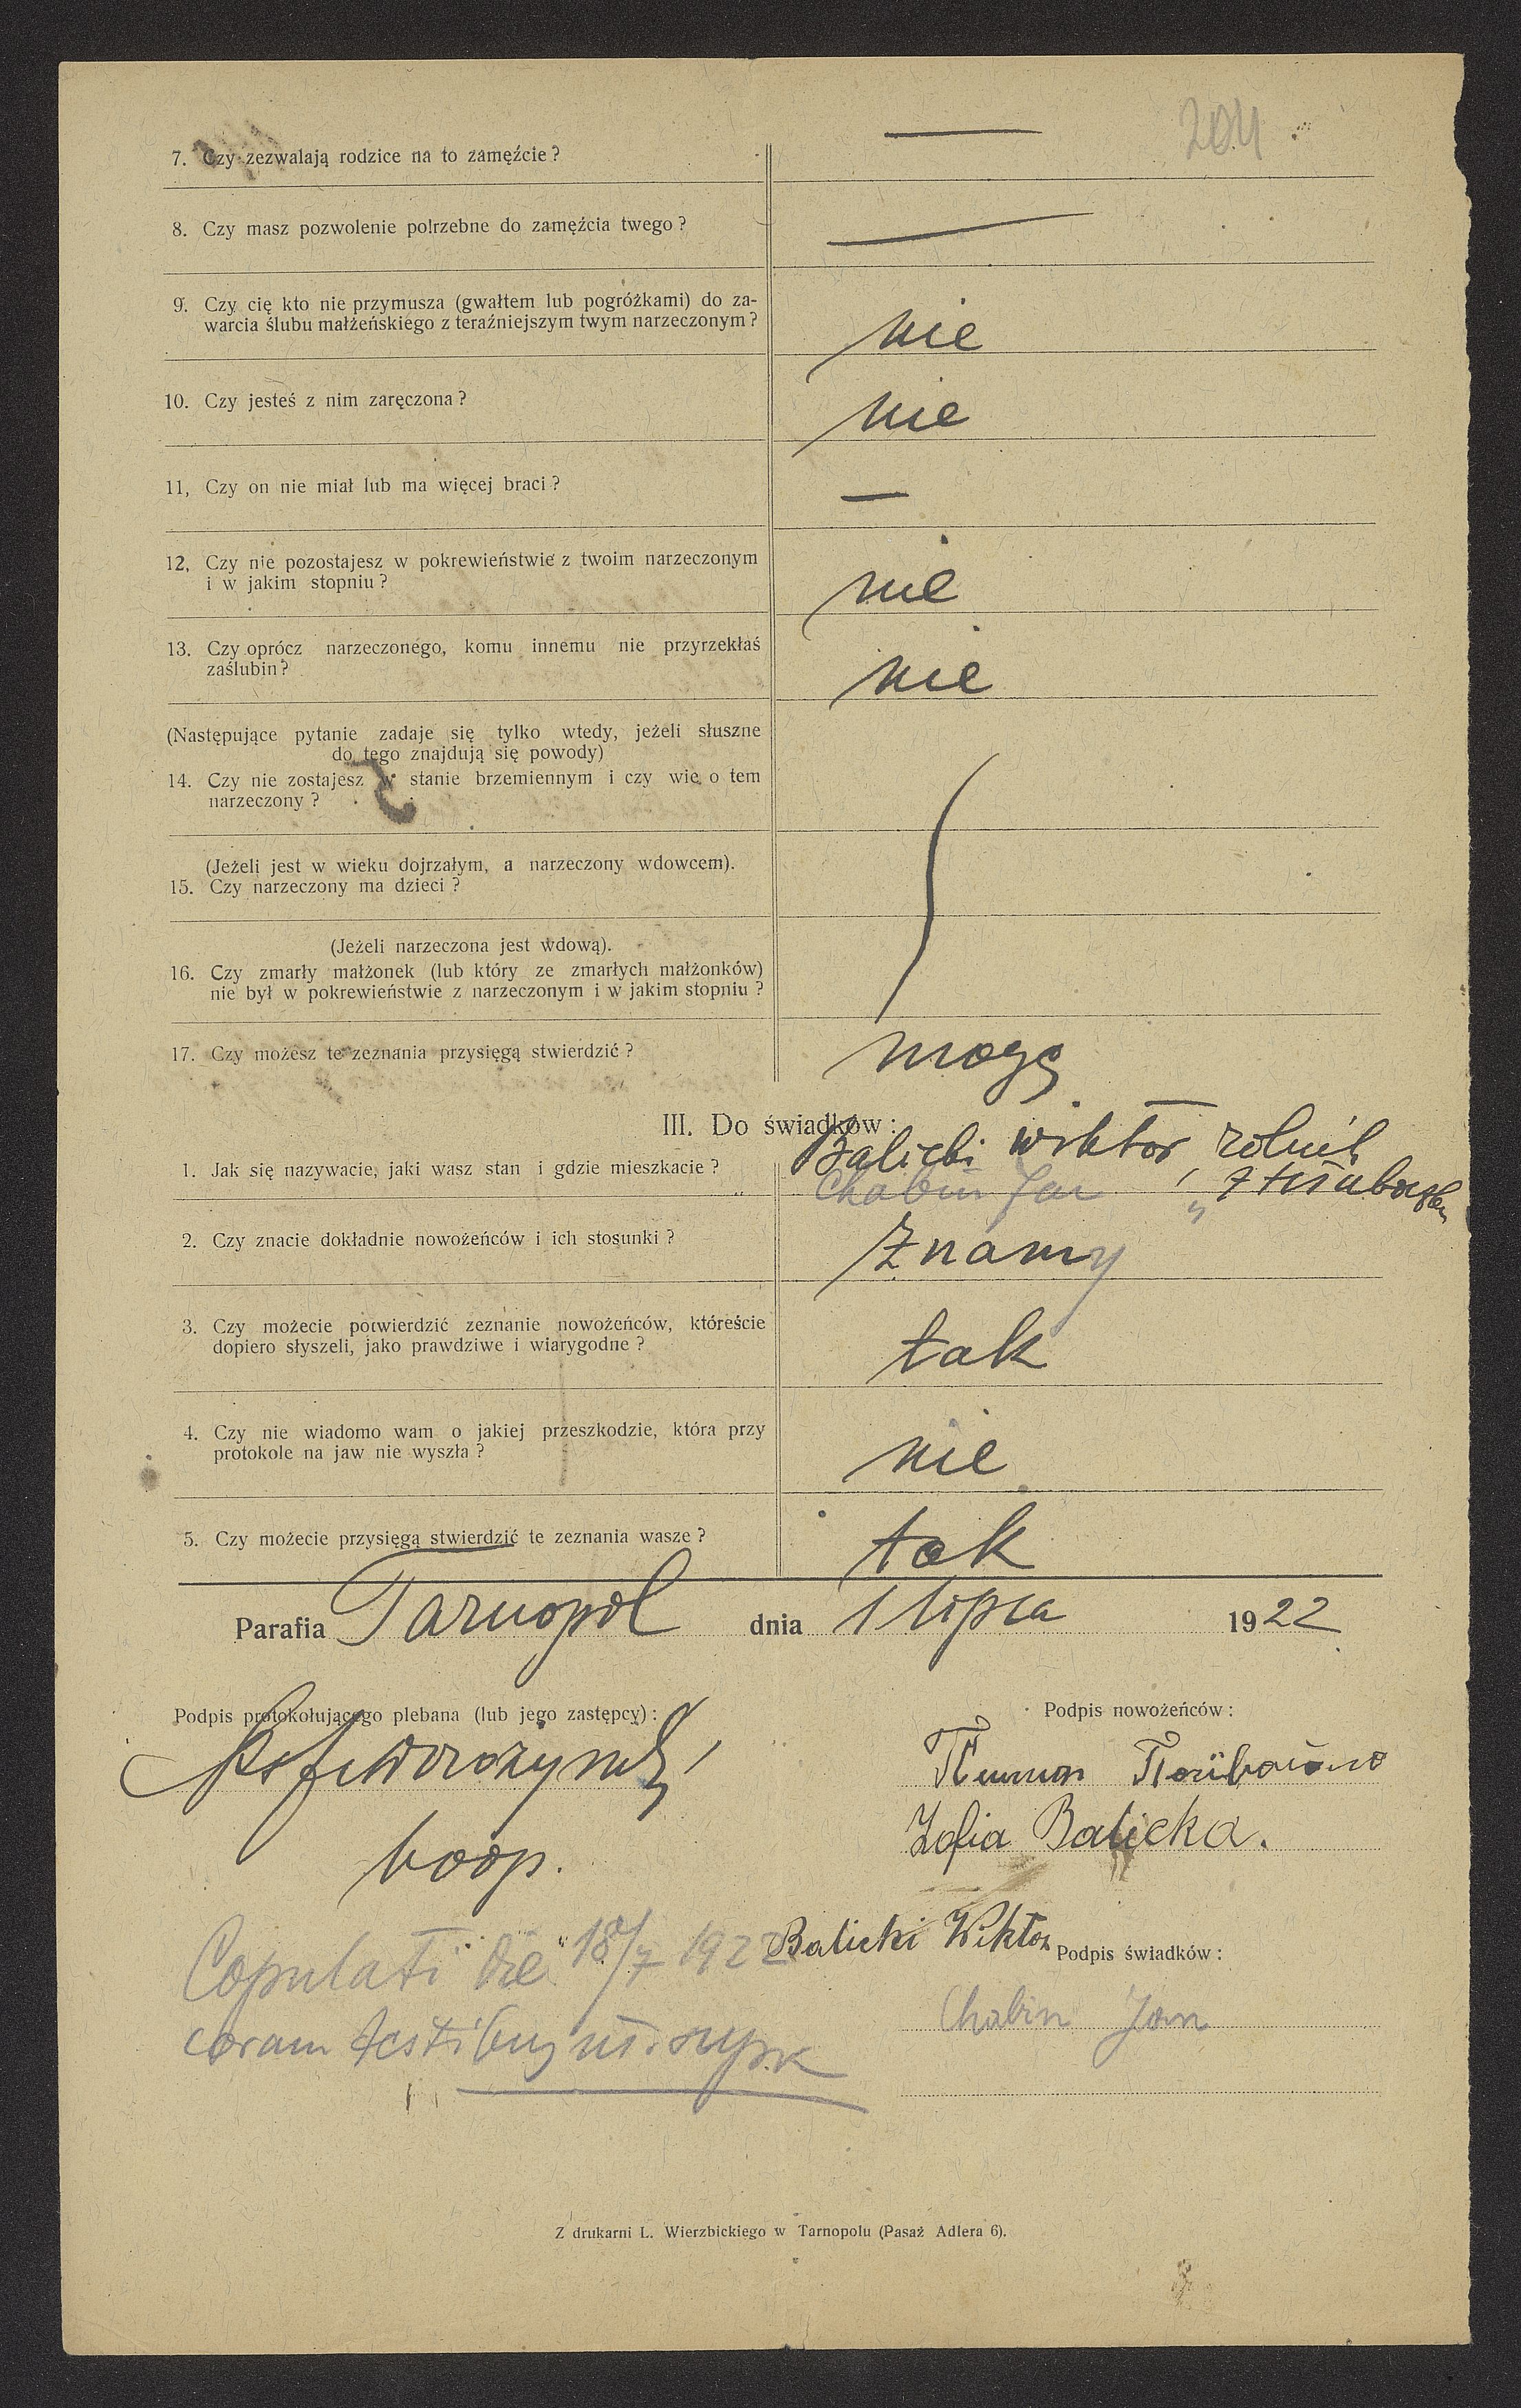 204
7. Czy zezwalają rodzice na to zamęźcie?
8. Czy masz pozwolenie potrzebne do zamęźcia twego?
9. Czy cię kto nie przymusza (gwałtem lub pogróżkami) do za-
warcia ślubu małżeńskiego z teraźniejszym twym narzeczonym?
nie
10. Czy jesteś z nim zaręczona?
nie
11, Czy on nie miał lub ma więcej braci?
—
12, Czy nie pozostajesz w pokrewieństwie z twoim narzeczonym
i w jakim stopniu?
nie
13. Czy oprócz narzeczonego, komu innemu nie przyrzekłaś
zaślubin?
nie
(Następujące pytanie zadaje się tylko wtedy, jeżeli słuszne
do tego znajdują się powody)
14. Czy nie zostajesz w stanie brzemiennym i czy wie o tem
narzeczony?
(Jeżeli jest w wieku dojrzałym, a narzeczony wdowcem).
15. Czy narzeczony ma dzieci?
(Jeżeli narzeczona jest wdową).
16. Czy zmarły małżonek (lub który ze zmarłych małżonków)
nie był w pokrewieństwie z narzeczonym i w jakim stopniu?
17. Czy możesz te zeznania przysięgą stwierdzić?
mogę
III. Do świadków:
Balicki Wiktor, rolnik
1. Jak się nazywacie, jaki wasz stan i gdzie mieszkacie?
Chabin Jan , „ z
2. Czy znacie dokładnie nowożeńców i ich stosunki?
Znamy
3. Czy możecie potwierdzić zeznanie nowożeńców, któreście
dopiero słyszeli, jako prawdziwe i wiarygodne?
tak
4. Czy nie wiadomo wam o jakiej przeszkodzie, która przy
protokole na jaw nie wyszła?
nie
5. Czy możecie przysięgą stwierdzić te zeznania wasze?
tak
Parafia Tarnopol dnia 1 lipca 1922
Podpis protokołującego plebana (lub jego zastępcy):
Podpis nowożeńców:
Zofia Balicka.
koop.
Copulati die 18/7 1922
Balicki Wiktor
Podpis świadków:
Chabin Jan
coram testibus ut.
Z drukarni L. Wierzbickiego w Tarnopolu (Pasaż Adlera 6).